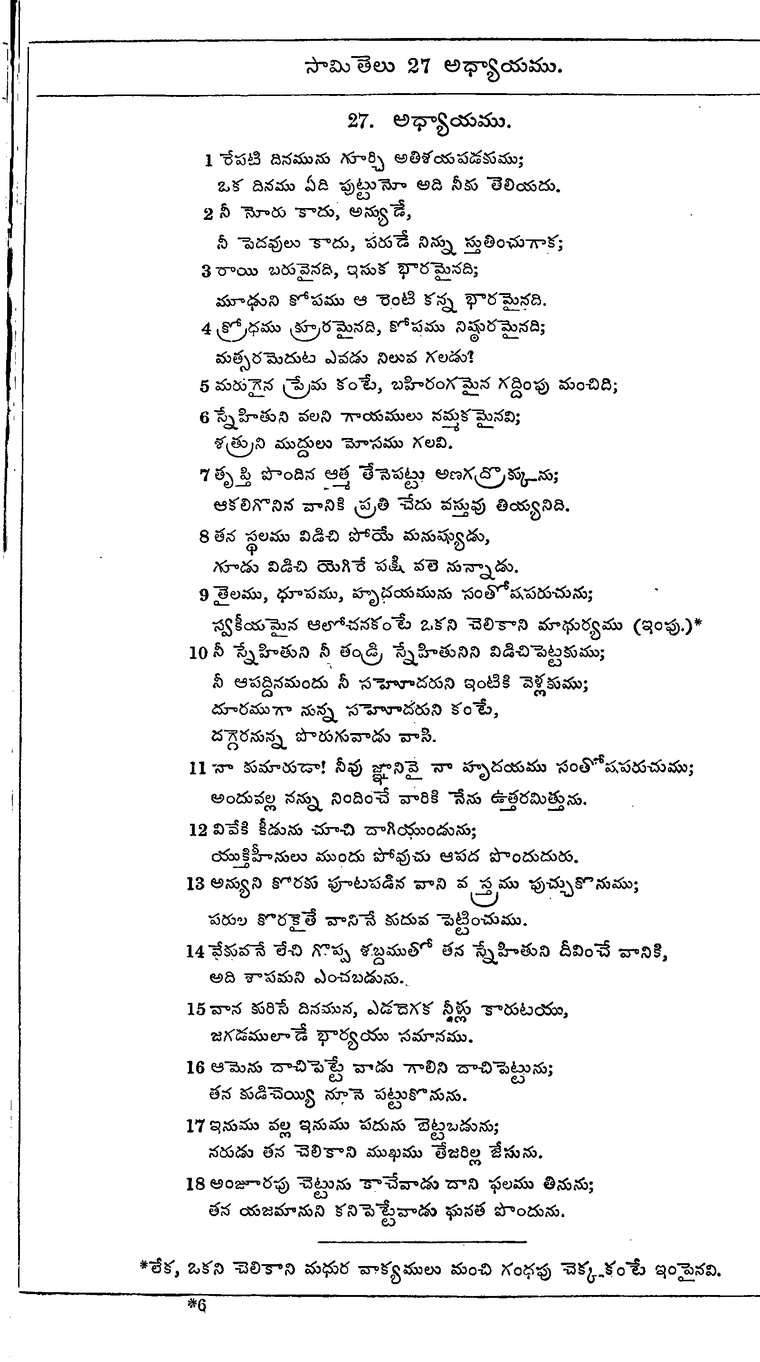 సామితెలు 27 అధ్యాయము.
27. అధ్యాయము.
1 రేపటి దినమును గూర్చి అతిశయపడకుము;
ఒక దినము ఏది పుట్టునో అది నీకు తెలియదు.
2 నీ నోరు కాదు, అన్యుడే,
నీ పెదవులు కాదు, పరుడే నిన్ను స్తుతించుగాక;
3 రాయి బరువైనది, ఇసుక భారమైనది;
మూఢుని కోపము ఆ రెంటి కన్న భారమైనది.
4 క్రోధము క్రూరమైనది, కోపము నిష్ఠురమైనది;
మత్సరమెదుట ఎవడు నిలువ గలడు?
5 మరుగైన ప్రేమ కంటే, బహిరంగమైన గద్దింపు మంచిది;
6 స్నేహితుని వలని గాయములు నమ్మకమైనవి;
శత్రుని ముద్దులు మోసము గలవి.
7 తృప్తి పొందిన ఆత్మ తేనెపట్టు అణగద్రొక్కును;
ఆకలిగొనిన వానికి ప్రతి చేదు వస్తువు తియ్యనిది.
8 తన స్థలము విడిచి పోయే మనుష్యుడు,
గూడు విడిచి యెగిరే పక్షి వలె నున్నాడు.
9 తైలము, ధూపము, హృదయమును సంతోషపరుచును;
స్వకీయమైన ఆలోచనకంటే ఒకని చెలికాని మాధుర్యము (ఇంపు.)*
10 నీ స్నేహితుని నీ తండ్రి స్నేహితునిని విడిచిపెట్టకుము;
నీ ఆపద్దినమందు నీ సహోదరుని ఇంటికి వెళ్లకుము;
దూరముగా నున్న సహోదరుని కంటే,
దగ్గెరనున్న పొరుగువాడు వాసి.
11 నా కుమారుడా! నీవు జ్ఞానివై నా హృదయము సంతోషపరుచుము;
అందువల్ల నన్ను నిందించే వారికి నేను ఉత్తరమిత్తును.
12 వివేకి కీడును చూచి దాగియుండును;
యుక్తిహీనులు ముందు పోవుచు ఆపద పొందుదురు.
13 అన్యుని కొరకు పూటపడిన వాని వస్త్రము పుచ్చుకొనుము;
పరుల కొరకైతే వానినే కుదువ పెట్టించుము.
14 వేకువనే లేచి గొప్ప శబ్దముతో తన స్నేహితుని దీవించే వానికి,
అది శాపమని ఎంచబడును.
15 వాన కురిసే దినమున, ఎడదెగక నీళ్లు కారుటయు,
జగడములాడే భార్యయు సమానము.
16 ఆమెను దాచిపెట్టే వాడు గాలిని దాచిపెట్టును;
తన కుడిచెయ్యి నూనె పట్టుకొనును.
17 ఇనుము వల్ల ఇనుము పదును బెట్టబడును;
నరుడు తన చెలికాని ముఖము తేజరిల్ల జేసును.
18 అంజూరపు చెట్టును కాచేవాడు దాని ఫలము తినును;
తన యజమానుని కనిపెట్టేవాడు ఘనత పొందును.
*లేక, ఒకని చెలికాని మధుర వాక్యములు మంచి గంధపు చెక్కకంటే ఇంపైనవి.
*6